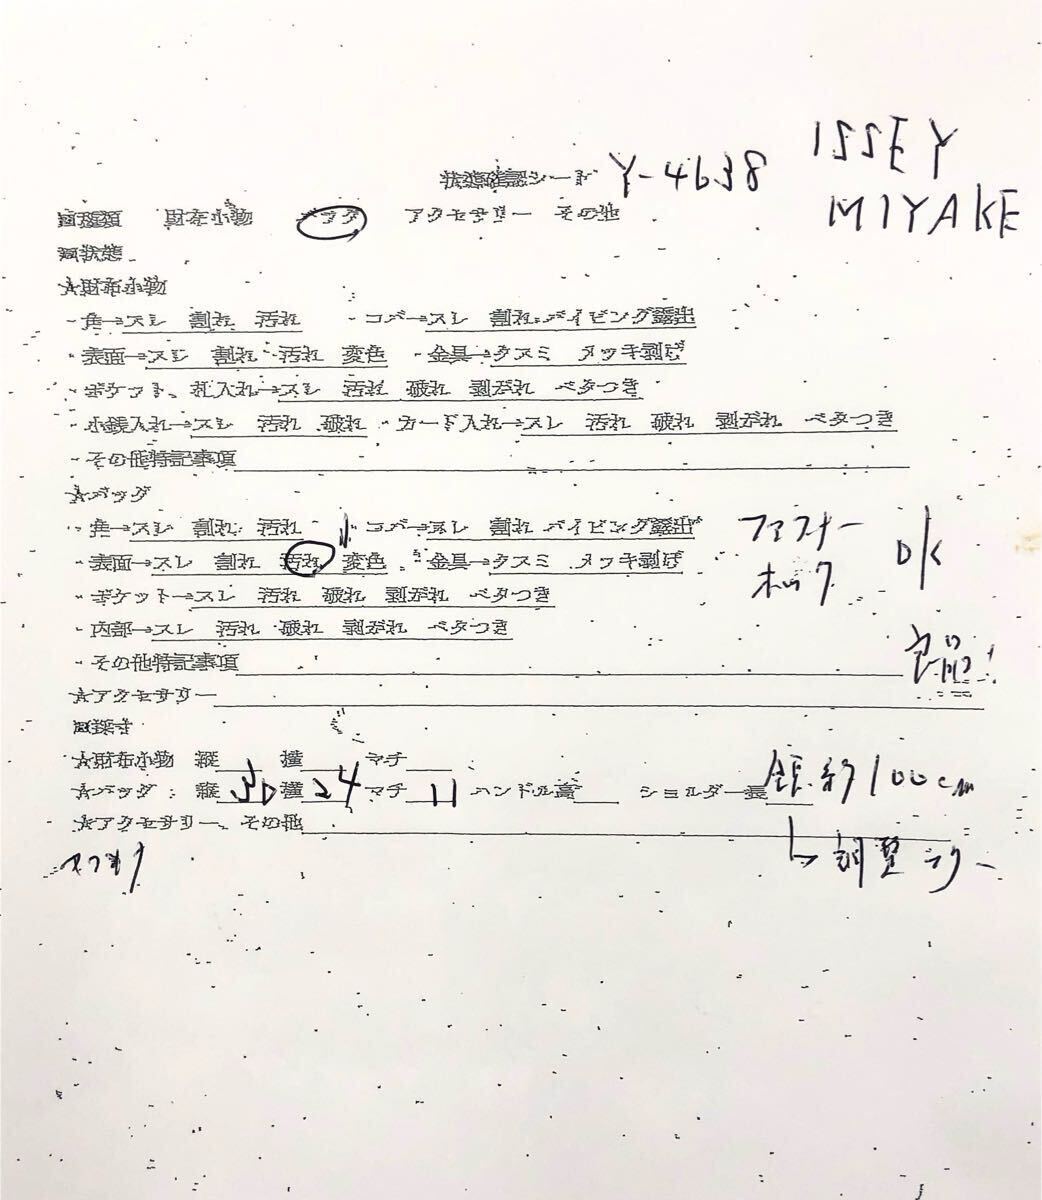 ISSEY
MIYAKE
状態確認シート Y-4638
□種類 財布小物 バッグ アクセサリー その他
□状態
☆財布小物
・角→スレ 割れ 汚れ ・コバ→スレ 割れ パイピング露出
・表面→スレ 割れ 汚れ 変色 ・金具→クスミ メッキ剥げ
・ポケット、札入れ→スレ 汚れ 破れ 剥がれ ベタつき
・小銭入れ→スレ 汚れ 破れ ・カード入れ→スレ 汚れ 破れ 剥がれ ベタつき
・その他特記事項
☆バッグ
・角→スレ 割れ 汚れ 小 ・コバ→スレ 割れ パイピング露出
・表面→スレ 割れ 汚れ 変色 ・金具→クスミ メッキ剥げ
ファスナー
ホック
OK
・ポケット→スレ 汚れ 破れ 剥がれ ベタつき
・内部→スレ 汚れ 破れ 剥がれ ベタつき
良品!
・その他特記事項
☆アクセサリー
□採寸
☆財布小物 縦 横 マチ
☆バッグ: 縦 30 横 24 マチ 11 ハンドル高 ショルダー長 全長約100cm
☆アクセサリー、その他
↳調整